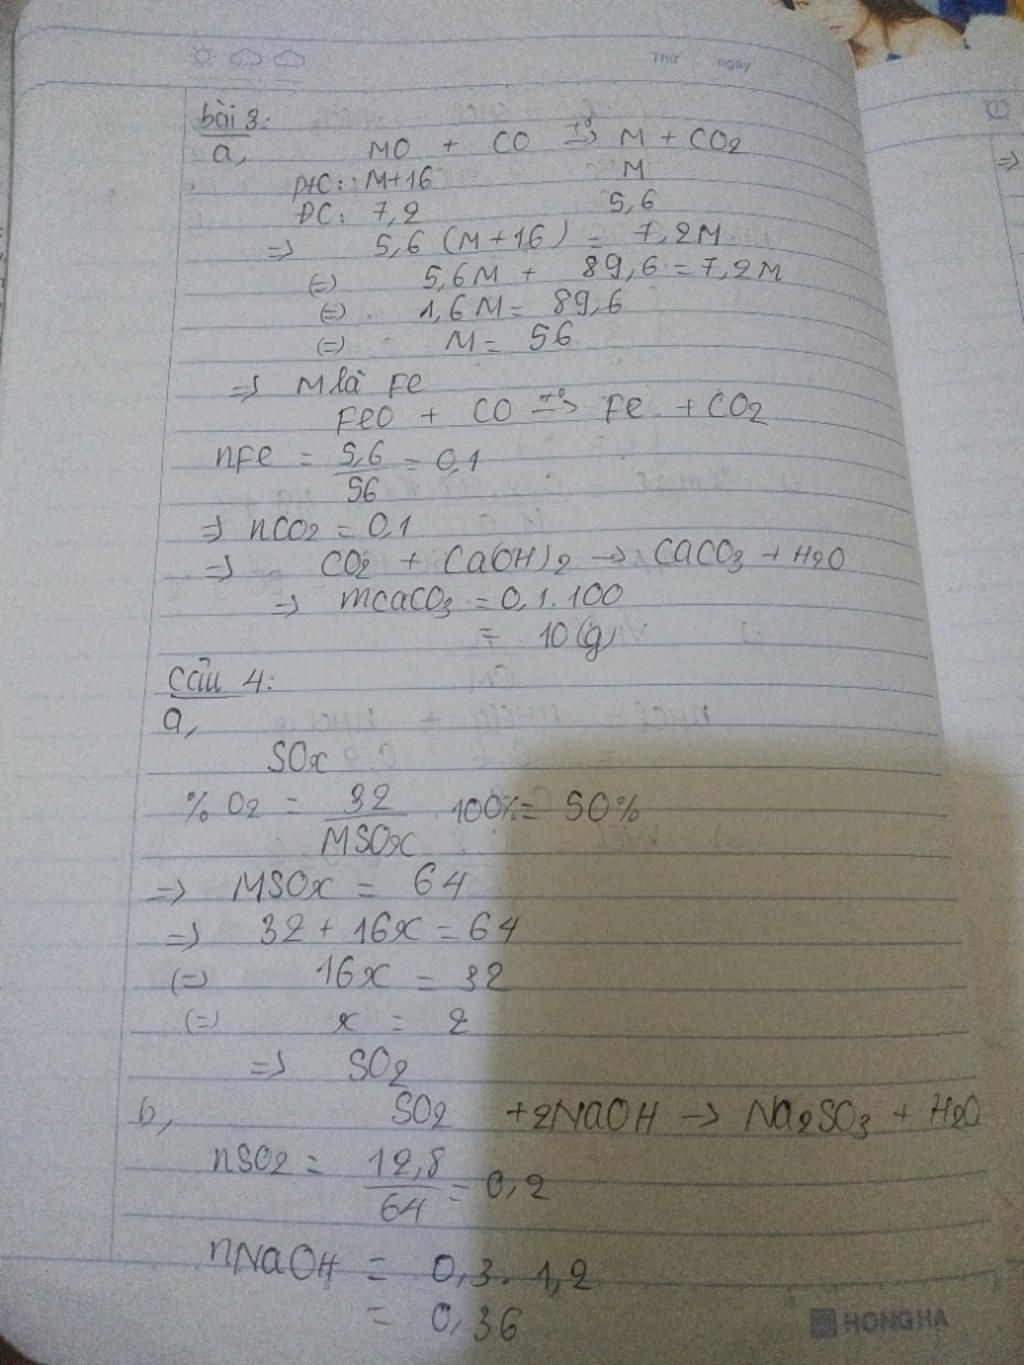 Thứ ngày
bài 3:
a, MO + CO t°→ M + CO2
PTC: M+16 M
ĐC: 7,2 5,6
=> 5,6 (M+16) = 7,2M
(=) 5,6M + 89,6 = 7,2M
(=) 1,6M = 89,6
(=) M = 56
=> M là Fe
FeO + CO t°→ Fe + CO2
nFe = 5,6/56 = 0,1
=> nCO2 = 0,1
=> CO2 + Ca(OH)2 → CaCO3 + H2O
=> mCaCO3 = 0,1.100
= 10(g)
Câu 4:
a,
SOx
% O2 = 32/MSOx 100% = 50%
=> MSOx = 64
=> 32 + 16x = 64
(=) 16x = 32
(=) x = 2
=> SO2
b, SO2 + 2NaOH → Na2SO3 + H2O
nSO2 = 12,8/64 = 0,2
nNaOH = 0,3.1,2
= 0,36
HONG HA